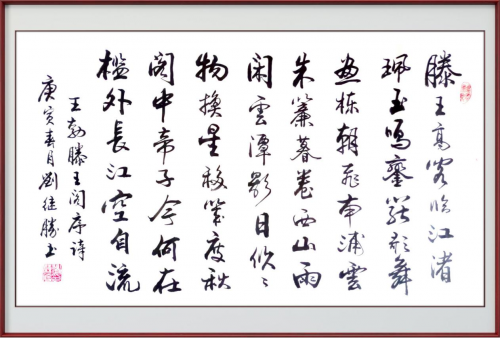 滕王高阁临江渚
珮玉鳴鑾罷歌舞
畫栋朝飛南浦雲
朱簾暮卷西山雨
闲雲潭影日悠悠
物換星移幾度秋
阁中帝子今何在
檻外長江空自流
王勃滕王阁序诗
庚寅春月劉继勝书